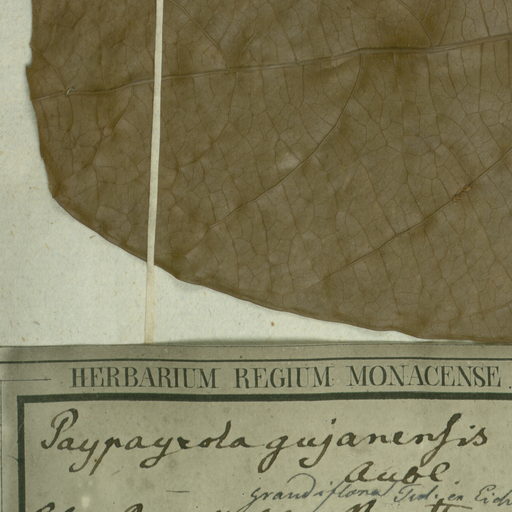 HERBARIUM REGIUM MONACENSE
Paypayrola gujanensis
Aubl.
grandiflora Tul. in Eichl